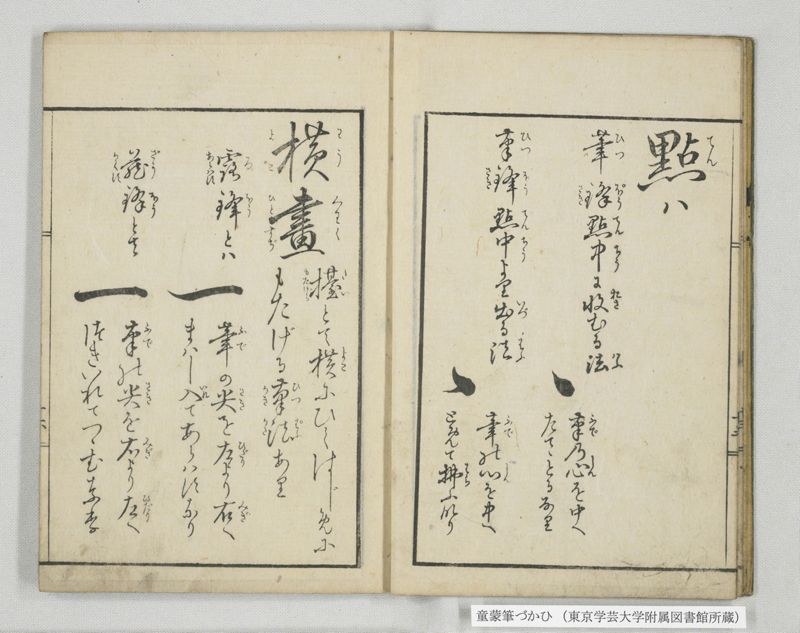 點ハ
筆鋒點中に收むる法
筆の心を中へ
たてとるなり
筆鋒點中より出る法
筆の心を中へ
とめて拂ふなり
横畫
擡とて横にひくはじめに
もたげる筆法あり
露鋒とハ
筆の尖を左より右へ
まハし入てあらハすなり
藏鋒とて
筆の尖を右より左へ
童蒙筆づかひ （東京学芸大学附属図書館所蔵）